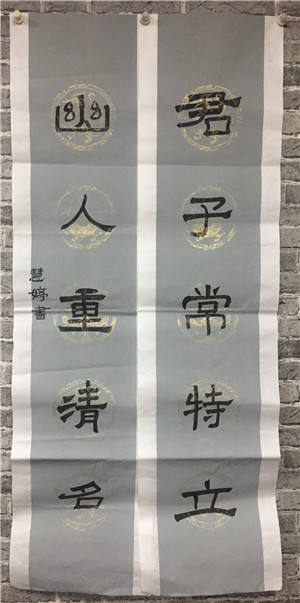 君子常特立
幽人重清名
慧婷書